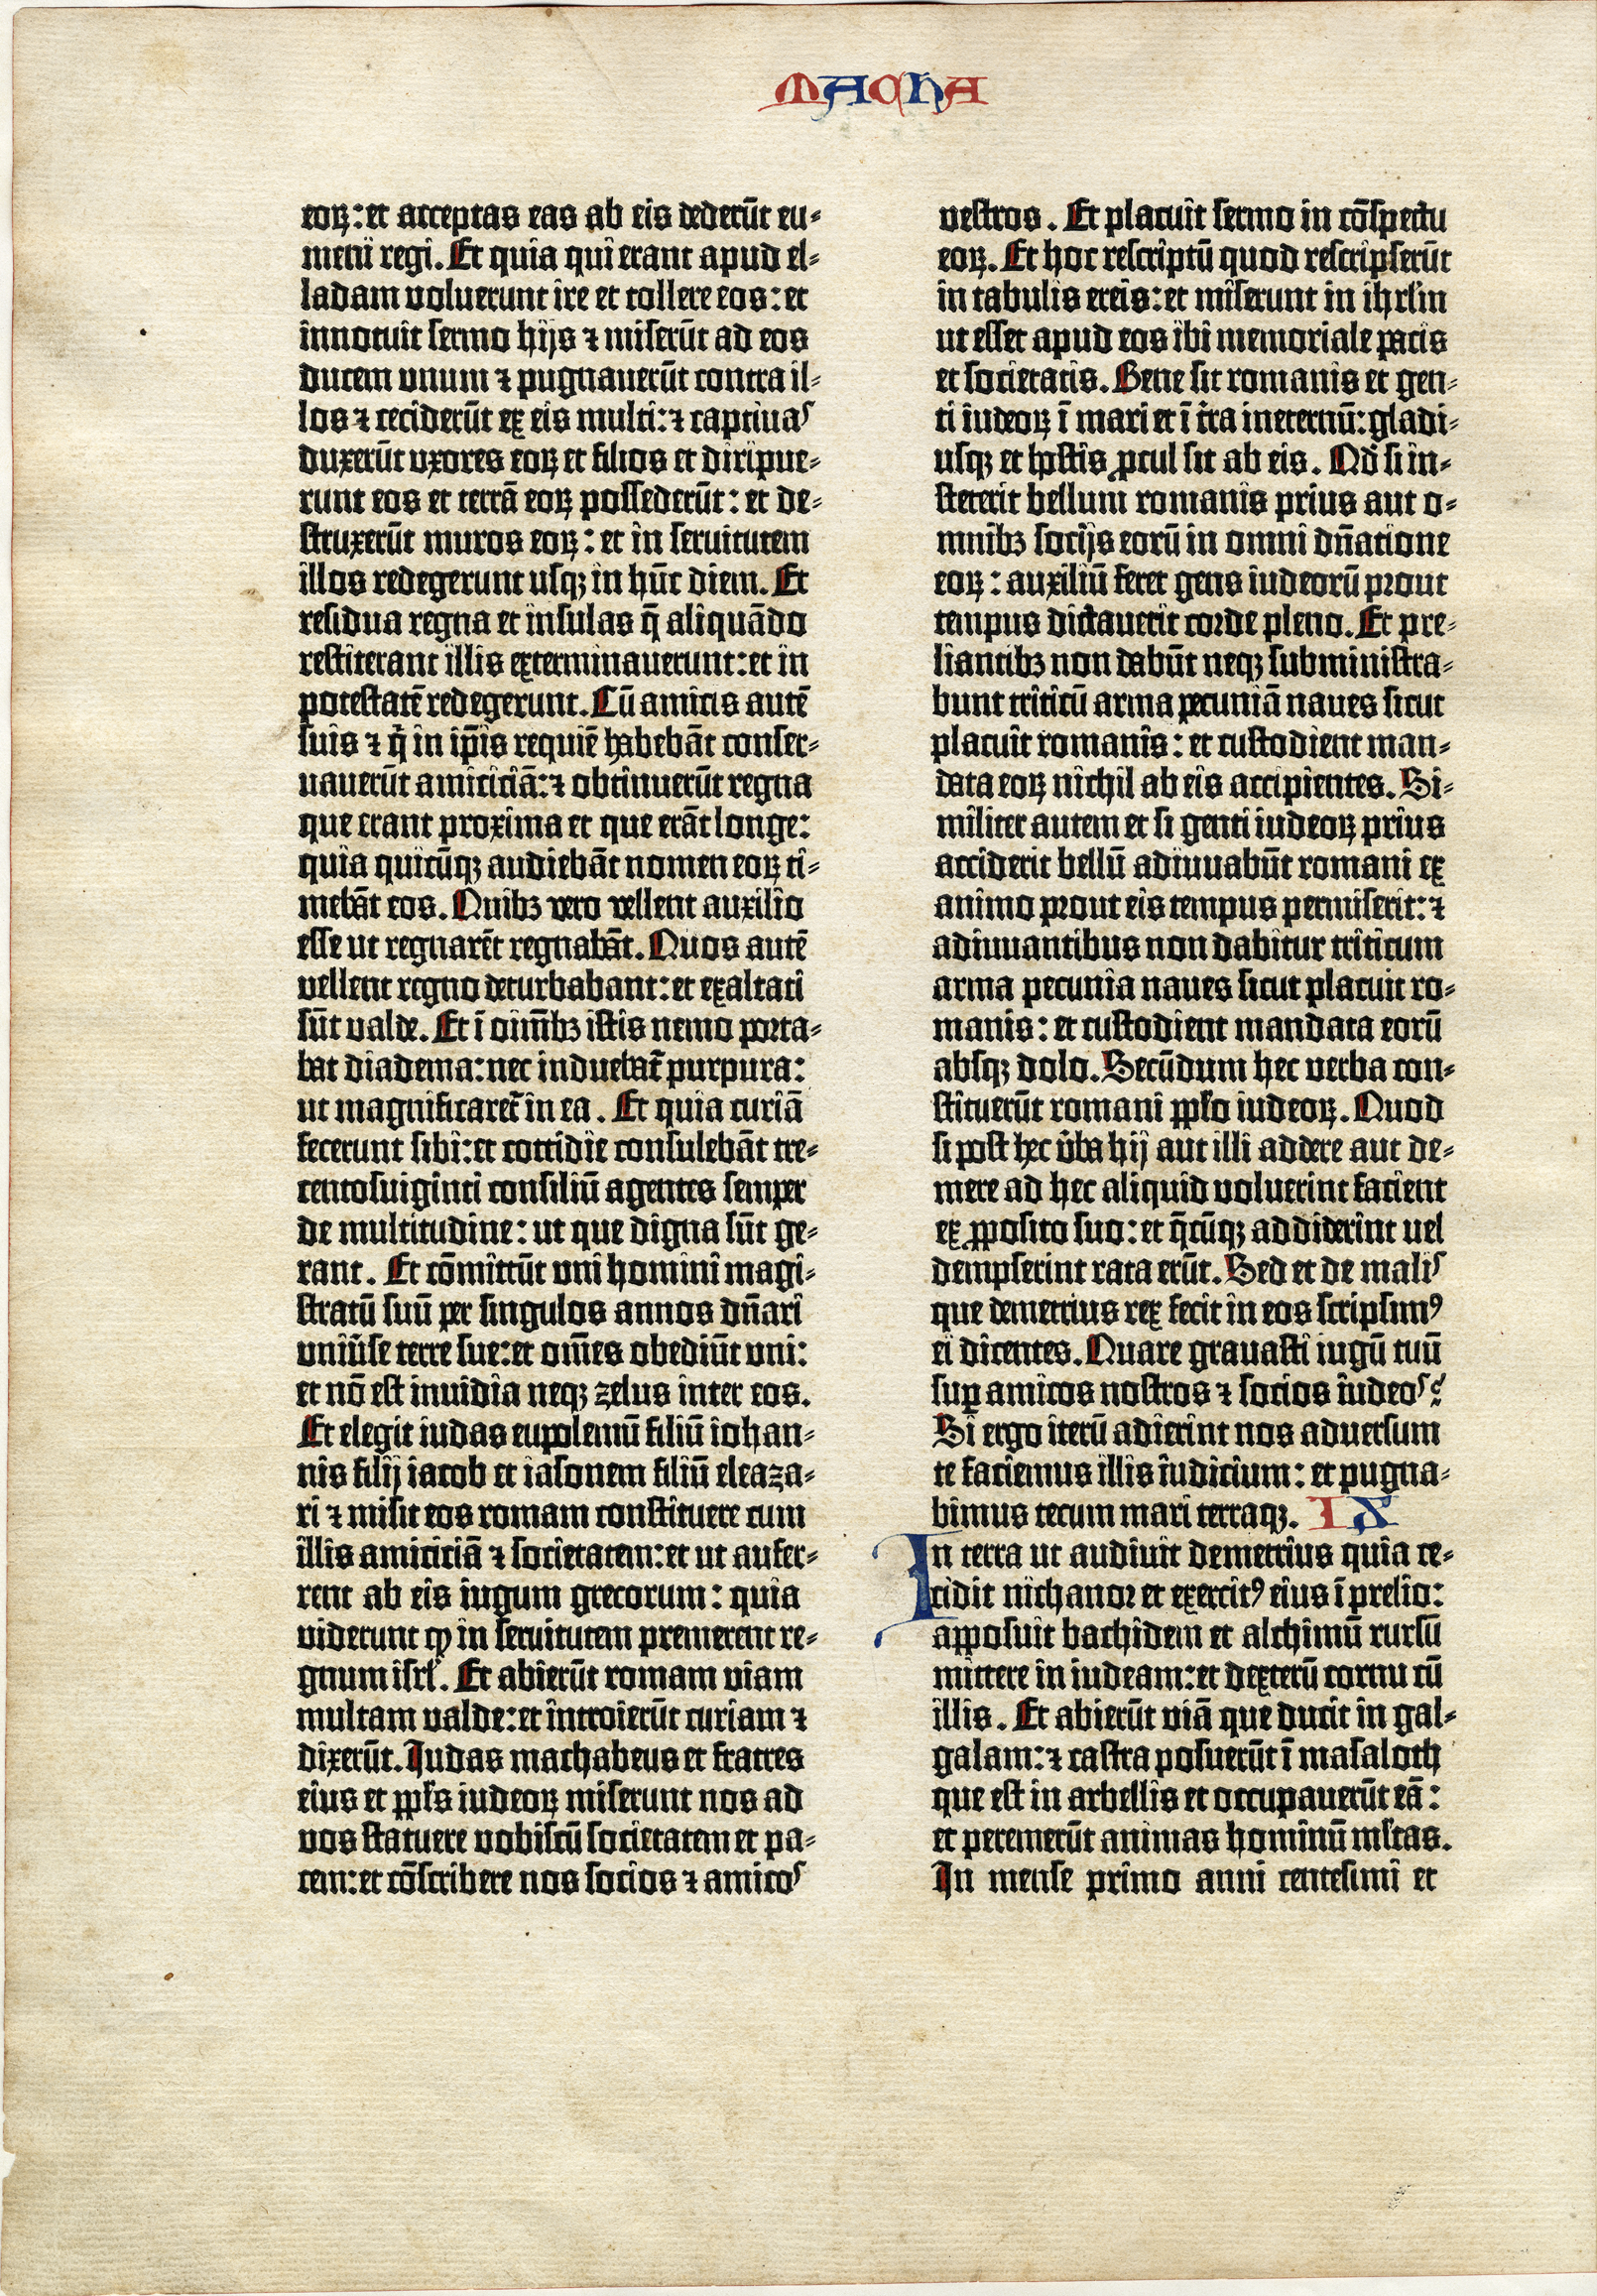 MACHA
eoꝝ: et acceptas eas ab eis dederūt eu-
meni regi. Et quia qui erant apud el-
ladam voluerunt ire et tollere eos: et
innotuit sermo hijs ⁊ miserūt ad eos
ducem unum ⁊ pugnauerūt contra il-
los ⁊ ceciderūt ex eis multi: ⁊ captivas
duxerūt vxores eoꝝ et filios et diripue-
runt eos et terrā eoꝝ possederūt: et de-
struxerūt muros eoꝝ: et in seruitutem
illos redegerunt usqꝫ in hūc diem. Et
residua regna et insulas q̄ aliquādo
restiterant illis exterminauerunt: et in
potestatē redegerunt. Cū amicis autē
suis ⁊ q̄ in ip̄is requiē habebāt conser-
uauerūt amiciciā: ⁊ obtinuerūt regna
que erant proxima et que erāt longe:
quia quicūqꝫ audiebāt nomen eoꝝ ti-
mebāt eos. Quibꝫ vero vellent auxilio
esse ut regnarēt regnabāt. Quos autē
vellent regno deturbabant: et exaltati
sūt valde. Et ī oim̄bꝫ istis nemo porta-
bat diadema: nec induebat̄ purpura:
ut magnificaret̄ in ea. Et quia curiā
fecerunt sibi: et cottidie consulebāt tre-
centosuiginti consiliū agentes semper
de multitudine: ut que digna sūt ge-
rant. Et cōmittūt uni homini magi-
stratū suū per singulos annos dn̄ari
uniūse terre sue: et om̄es obediūt uni:
et nō est inuidia neqꝫ zelus inter eos.
Et elegit iudas eupolemū filiū iohan-
nis filij iacob et iasonem filiū eleaza-
ri ⁊ misit eos romam constituere cum
illis amiciciā ⁊ societatem: et ut aufer-
rent ab eis iugum grecorum: quia
viderunt ꝙ in seruitutem premerent re-
gnum isrl̓. Et abierūt romam viam
multam valde: et introierūt curiam ⁊
dixerūt. Iudas machabeus et fratres
eius et pp̄ls iudeoꝝ miserunt nos ad
vos statuere vobiscū societatem et pa-
cem: et cōscribere nos socios ⁊ amicos
vestros. Et placuit sermo in cōspectu
eoꝝ. Et hoc rescriptū quod rescripserūt
in tabulis ereis: et miserunt in ihrl̄m
ut esset apud eos ibi memoriale pacis
et societatis. Bene sit romanis et gen-
ti iudeoꝝ ī mari et ī t̄ra in eternū: gladi-
usqꝫ et hostis ꝓcul sit ab eis. Qd̄ si in-
steterit bellum romanis prius aut o-
mnibꝫ socijs eorū in omni dn̄atione
eoꝝ: auxiliū feret gens iudeorū prout
tempus dictauerit corde pleno. Et pre-
liantibꝫ non dabūt neqꝫ subministra-
bunt triticū arma pecuniā naues sicut
placuit romanis: et custodient man-
data eoꝝ nichil ab eis accipientes. Si-
militer autem et si genti iudeoꝝ prius
acciderit bellū adiuuabūt romani ex
animo prout eis tempus permiserit: ⁊
adiuuantibus non dabitur triticum
arma pecunia naues sicut placuit ro-
manis: et custodient mandata eorū
absqꝫ dolo. Secūdum hec verba con-
stituerūt romani pp̄lo iudeoꝝ. Quod
si post hec v̄ba hij aut illi addere aut de-
mere ad hec aliquid voluerint facient
ex ꝓposito suo: et q̄cūqꝫ addiderint vel
dempserint rata erūt. Sed et de malis
que demetrius rex fecit in eos scripsimꝰ
ei dicentes. Quare grauasti iugū tuū
suꝑ amicos nostros ⁊ socios iudeos?
Si ergo iterū adierint nos aduersum
te faciemus illis iudicium: et pugna-
bimus tecum mari terraqꝫ. IX
In terra ut audiuit demetrius quia ce-
cidit nichanor et exercitꝰ eius ī prelio:
apposuit bachidem et alchimū rursū
mittere in iudeam: et dexterū cornu cū
illis. Et abierūt viā que ducit in gal-
galam: ⁊ castra posuerūt ī masaloth
que est in arbellis et occupauerūt eā:
et peremerūt animas hominū ml̄tas.
In mense primo anni centesimi et